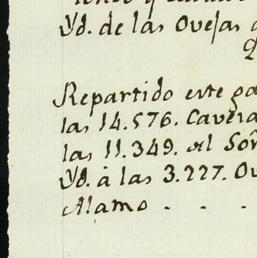 Yd. de las Ovejas
Repartido este ga
las 14.576. Cavera
las 11.349. al Sôr
Yd. à las 3.227. Ov
Alamo . . .